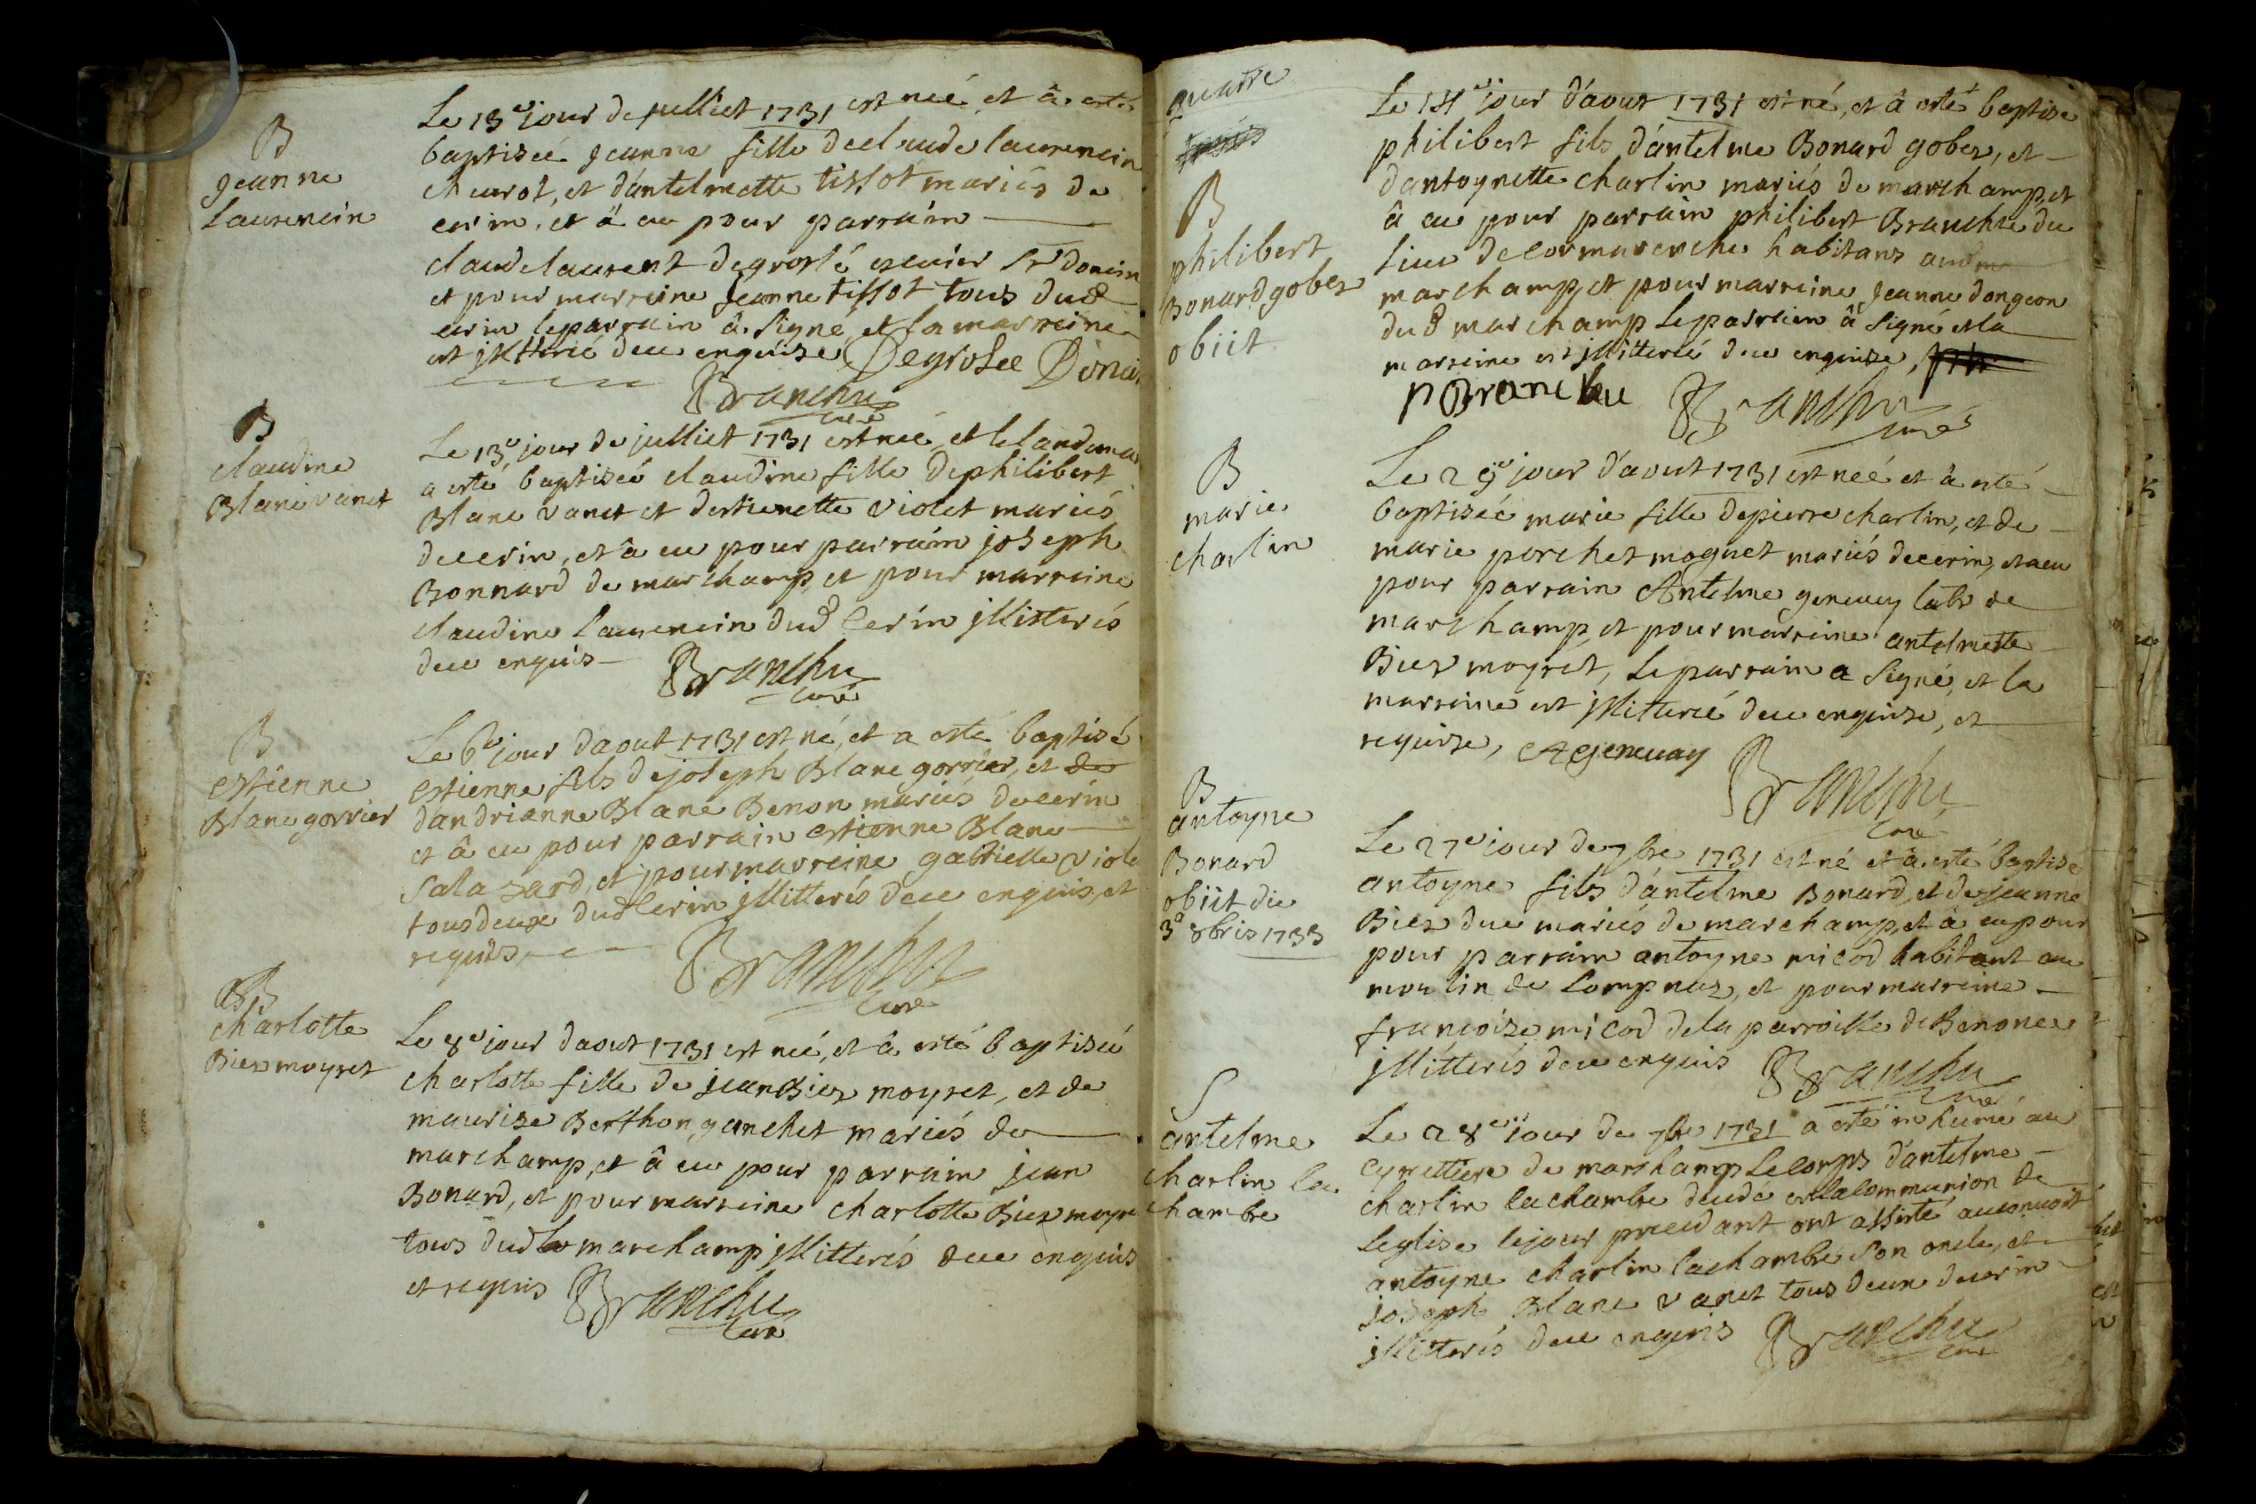 B
Jeanne
Laurencin
Le 13e jour de juilliet 1731 est neé et â esté
baptiseé Jeanne fille de claude laurencin
cheurot, et d'antelmette tissot mariés de
cerin, et â eu pour parrain
claude laurent degroslé escuier Sr doncin
et pour marreine Jeanne tissot tous dud
cerin le parrain â signé et la marreine
est jllitterée de ce enquise Degrolee Doncin
Branchu
curé
B
claudine
Blanc vanet
Le 13e jour de juilliet 1731 est neé et le landemain
a esté baptiseé claudine fille de philibert
Blanc vanet et d'estienette violet mariés
de cerin, et â eu pour parrain joseph
Bonnard de marchamp, et pour marreine
claudine Laurencin dud Cerin jllitterés
de ce enquis
Branchu
curé
B
estienne
Blanc gorrier
Le 6e jour d'aout 1731 est né, et a esté baptisé
estienne fils de joseph Blanc gorrier, et de
d'andrianne Blanc Benon mariés de cerin
et â eu pour parrain estienne Blanc
Salazard, et pour marreine gabrielle viole
tous deux dud Cerin jllitterés de ce enquis, et
requis
Branchu
curé
B
charlotte
Biez moyret
Le 8e jour d'aout 1731 est neé, et â esté baptiseé
charlotte fille de jean Biez moyret, et de
maurise Berthon ganchet mariés de
marchamp, et â eu pour parrain jean
Bonard, et pour marreine charlotte Biez moyre
tous dud marchamp jllitterés de ce enquis
et requis
Branchu
curé
quatre
B
philibert
Bonard gobez
obiit
Le 14e jour d'aout 1731 est né, et â esté baptisé
philibert fils d'antelme Bonard gobez, et
d'antoynette charlin mariés de marchamp, et
â eu pour parrain philibert Branchu du
lieu de cormaranche habitans aud
marchamp, et pour marreine Jeanne dongeon
dud marchamp Le parrain â signé et la
marreine est jllitterée de ce enquise,
P Branchu
Branchu
curé
B
marie
charlin
Le 29e jour d'aout 1731 est neé et â esté
baptiseé marie fille de pierre charlin, et de
marie porchet moguet mariés de cerin, et a eu
pour parrain Antelme genevey labr de
marchamp, et pour marreine antelmette
Biez moyret, Le parrain a signé, et la
marreine est jllitterée de ce enquise, et
requise, A Genevay
Branchu
curé
B
antoyne
Bonard
obiit die
3a 8bris 1733
Le 27e jour de 7bre 1731 est né et â esté baptisé
antoyne fils d'antelme Bonard, et de jeanne
Biez duc mariés de marchamp, et â eu pour
pour parrain antoyne micod habitant au
moulin de Lompnaz, et pour marreine
francoize micod de la parroisse de Benonce
jllitterés de ce enquis
Branchu
curé
S
antelme
charlin la
chambre
Le 28e jour de 7bre 1731 a esté inhumé au
cymettiere de marchamp Le corps d'antelme
charlin lachambre decedé en la communion de
L'eglise le jour precedant ont assisté au convoit
antoyne charlin lachambre son oncle, et
joseph Blanc vanet tous deux de cerin
jllitterés de ce enquis
Branchu
curé